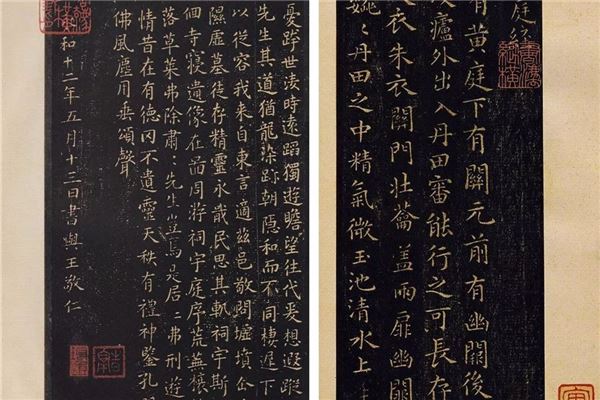 憂跨世淩時遠蹈獨遊瞻望往代爰想遐蹤
先生其道猶龍染跡朝隱和而不同棲遲下
以從容我來自東言適茲邑敬問墟墳企
隰虛墓徒存精靈永戢民思其軌祠宇斯
個寺寢遺像在啚周游祠宇庭序荒蕪榱
落草萊弗除肅〻先生豈焉是居〻弗刑遊
情昔在有德罔不遺靈天秩有禮神鑒孔
佛風塵用垂頌聲
和十二年五月十三日書與王敬仁
庭經
有黃庭下有關元前有幽關後
廬外出入丹田審能行之可長存
衣朱衣關門壯蘥蓋兩扉幽關
丹田之中精氣微玉池清水上